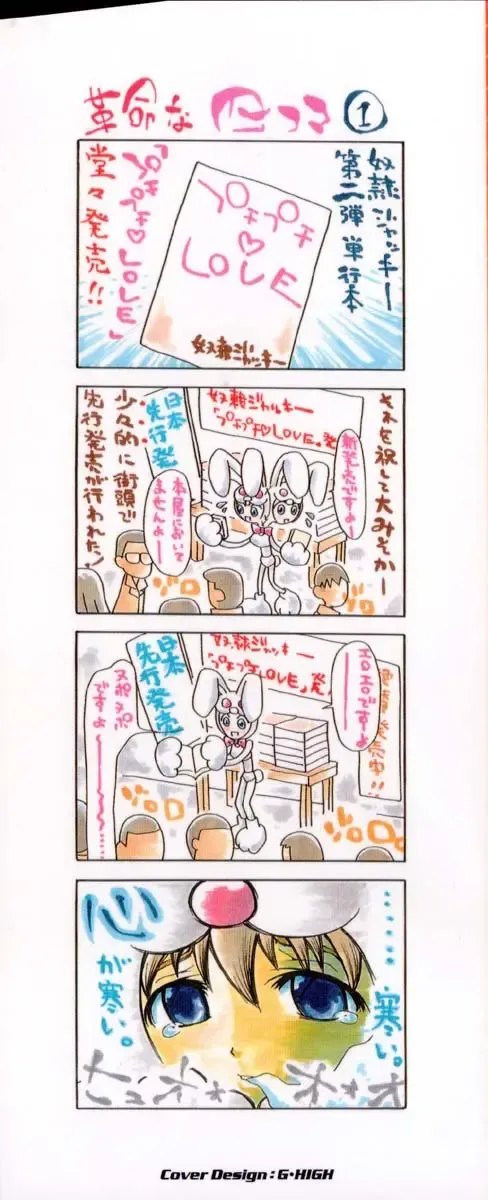 革命な
①
奴隷ジャッキー
第二弾単行本
プチプチ♡LOVE
奴隷ジャッキー
「プチプチ♡LOVE」
堂々発売!!
それを祝して大みそかー
奴隷ジャッキー
「プチプチ♡LOVE」発
新発売ですよー
日本
先行発
本屋において
ませんよー
少々的に街頭で
先行発売が行われた!
ゾロ
ゾロ
奴隷ジャッキー
「プチプチLOVE」発
エロエロですよ
発売中!!
日本
先行発売
ヌポヌポ
ですよ〜〜〜……
ゾロゾロ
ゾロゾロ
……寒い。
心
が寒い。
Cover Design:G・HIGH